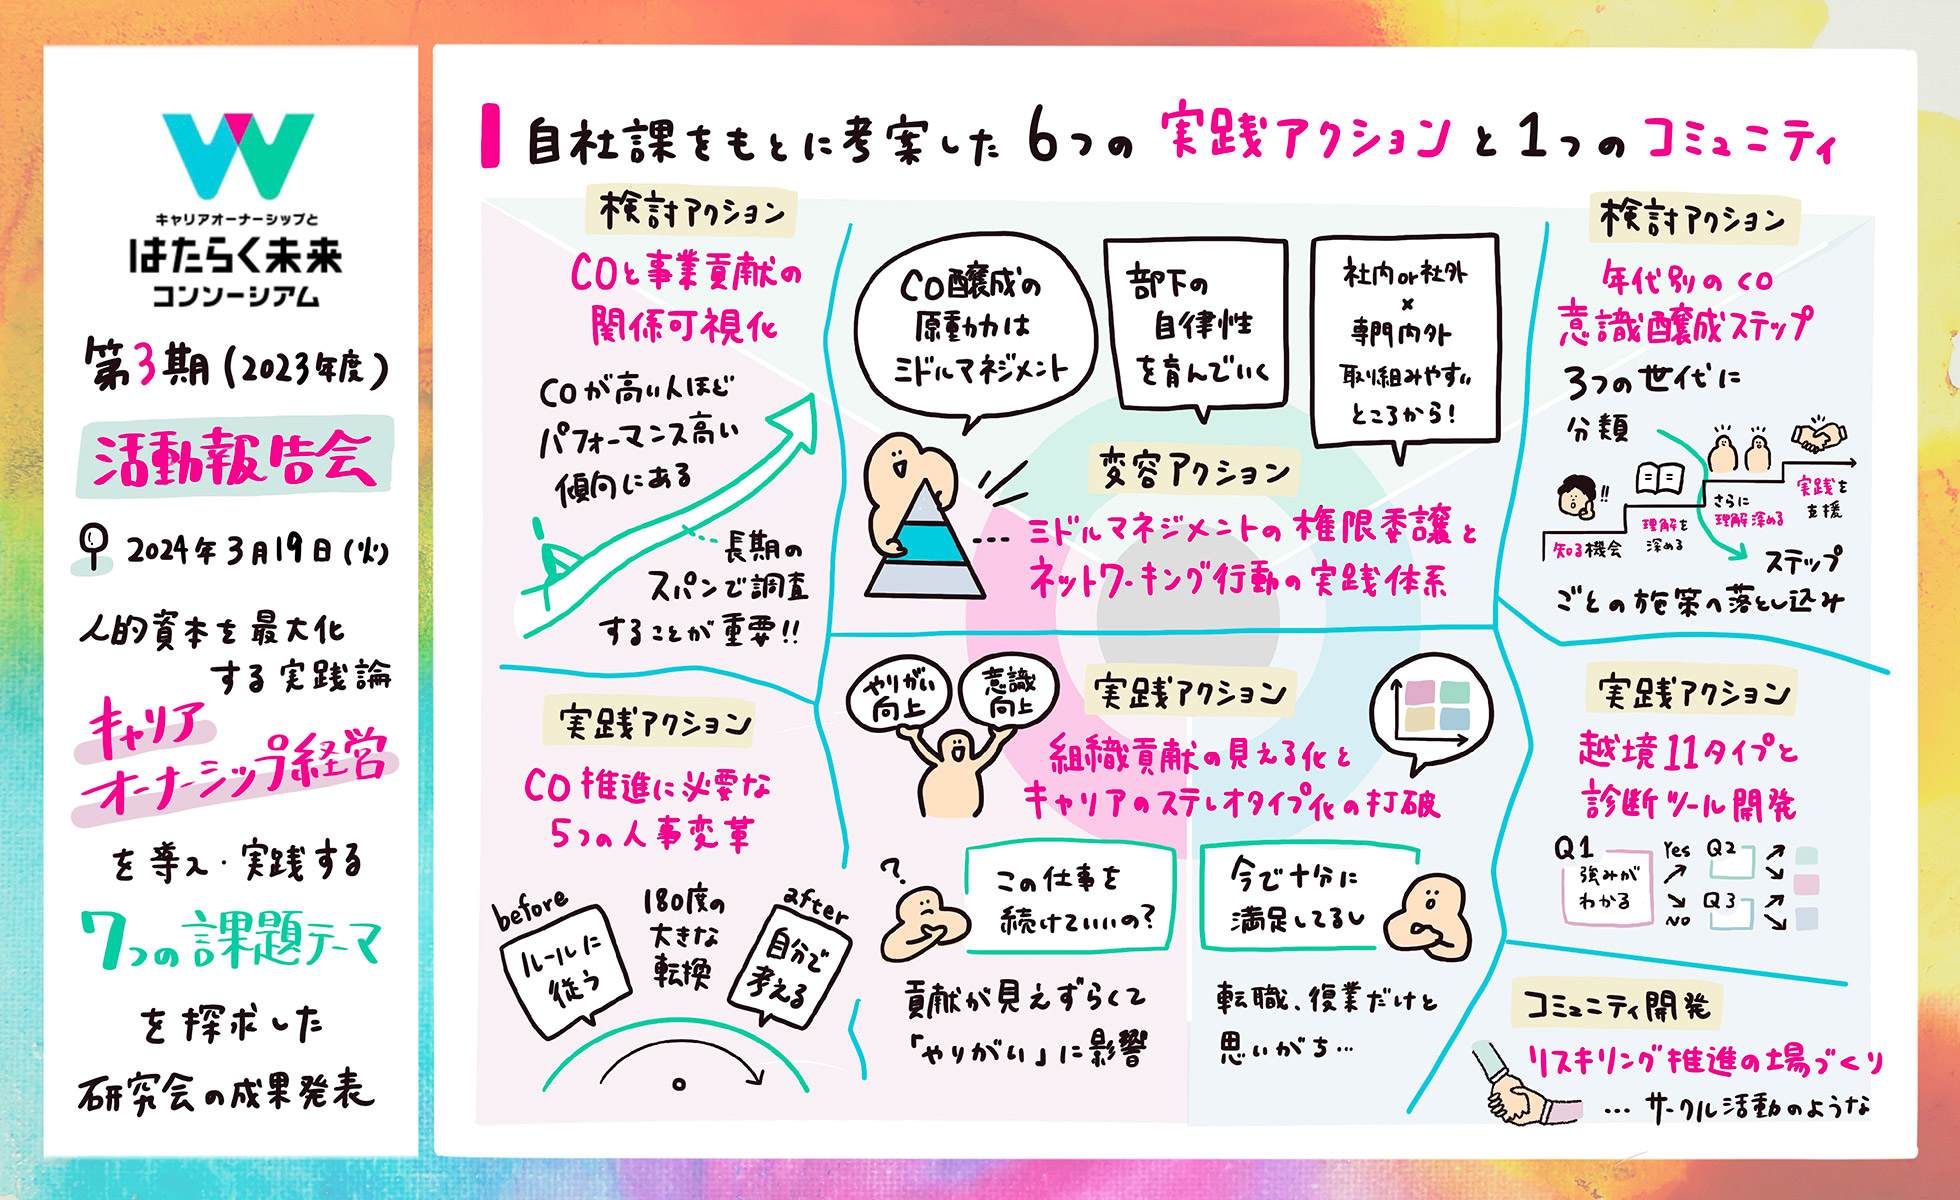 キャリアオーナーシップと
はたらく未来
コンソーシアム
第3期(2023年度)
活動報告会
2024年3月19日(火)
人的資本を最大化
する実践論
キャリア
オーナーシップ経営
を導入・実践する
7つの課題テーマ
を探求した
研究会の成果発表
自社課をもとに考案した6つの実践アクションと1つのコミュニティ
検討アクション
COと事業貢献の
関係可視化
COが高い人ほど
パフォーマンス高い
傾向にある
長期の
スパンで調査
することが重要!!
CO醸成の
原動力は
ミドルマネジメント
部下の
自律性
を育んでいく
社内or社外
×
専門内外
取り組みやすい
ところから!
変容アクション
…ミドルマネジメントの権限委譲と
ネットワーキング行動の実践体系
検討アクション
年代別のCO
意識醸成ステップ
3つの世代に
分類
!!
知る機会
理解を
深める
さらに
理解深める
実践を
支援
ステップ
ごとの施策へ落とし込み
実践アクション
CO推進に必要な
5つの人事変革
before
ルールに
従う
180度の
大きな
転換
after
自分で
考える
やりがい
向上
意識
向上
実践アクション
組織貢献の見える化と
キャリアのステレオタイプ化の打破
?
この仕事を
続けていいの?
今で十分に
満足してるし
貢献が見えずらくて
「やりがい」に影響
転職、復業だけと
思いがち…
実践アクション
越境11タイプと
診断ツール開発
Q1
強みが
わかる
Yes
No
Q2
Q3
コミュニティ開発
リスキリング推進の場づくり
…サークル活動のような